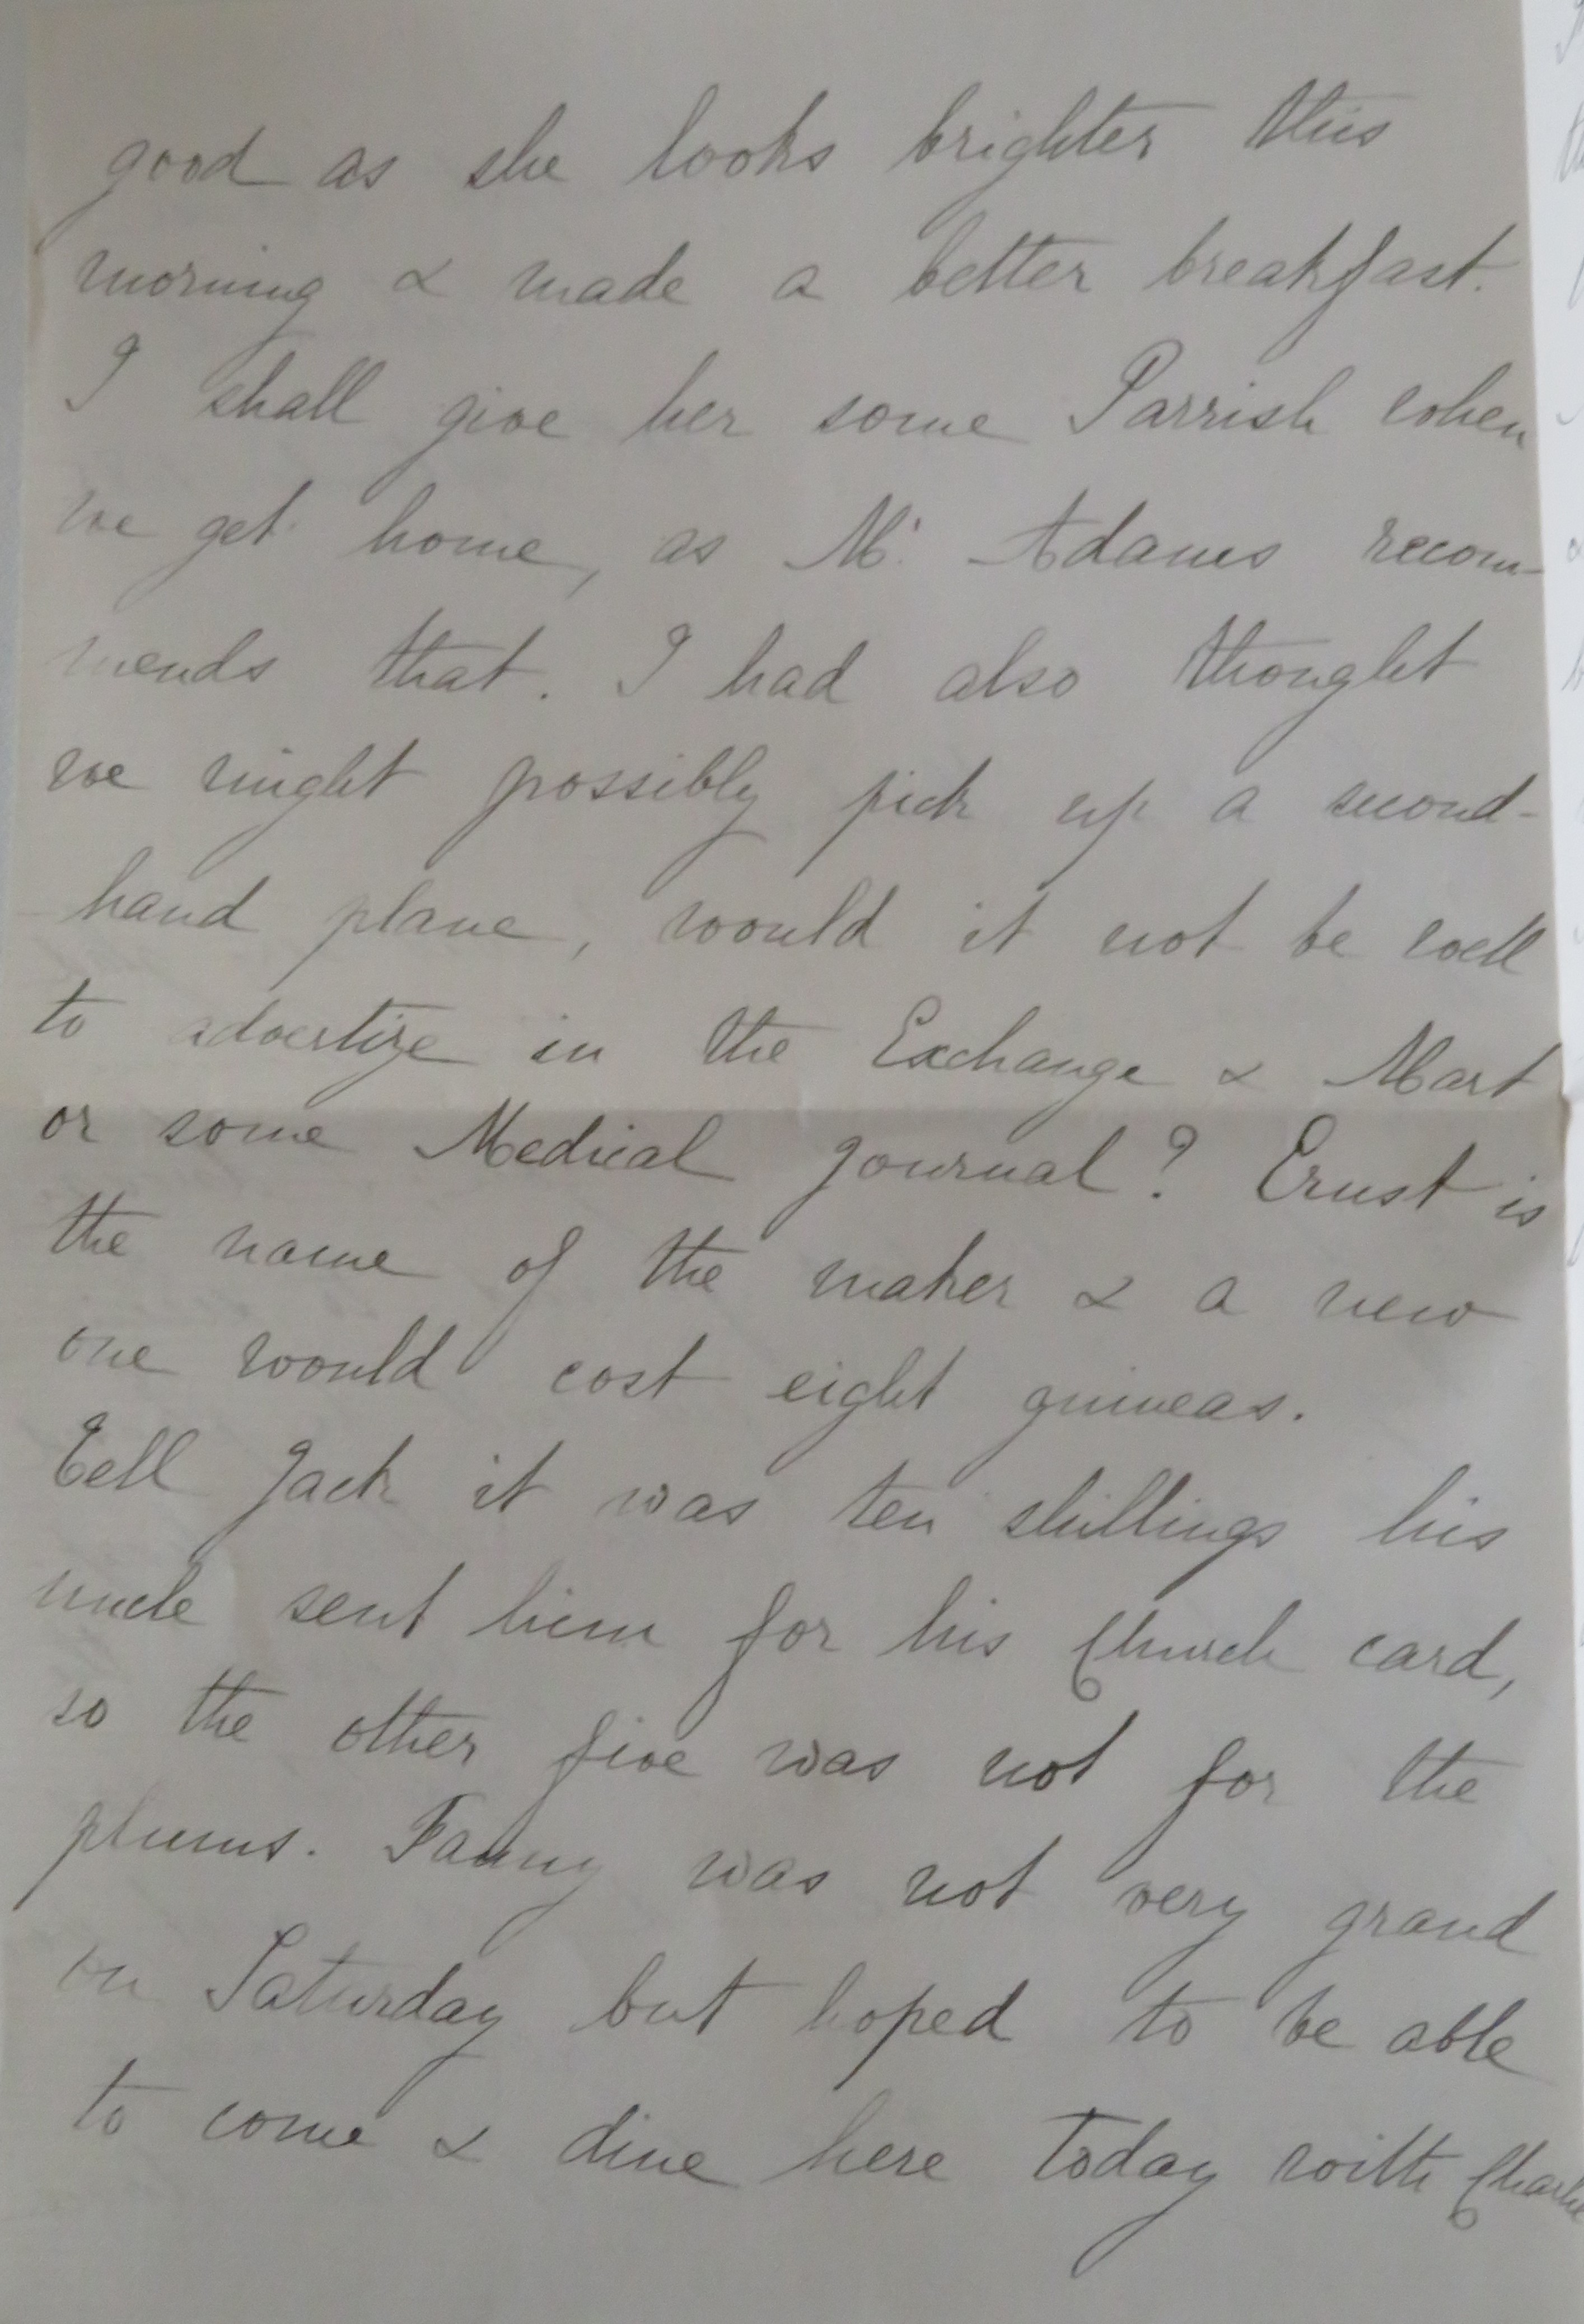 good as she looks brighter this
morning & made a better breakfast.
I shall give her some Parrish when
we get home, as Mr Adams recom-
mends that. I had also thought
we might possibly pick up a second-
-hand plane, would it not be well
to advertize in the Exchange & Mart
or some Medical Journal? Ernst is
the name of the maker & a new
one would cost eight guineas.
Tell Jack it was ten shillings his
uncle sent him for his Church card,
so the other five was not for the
plums. Fanny was not very grand
on Saturday but hoped to be able
to come & dine here today with Charlie